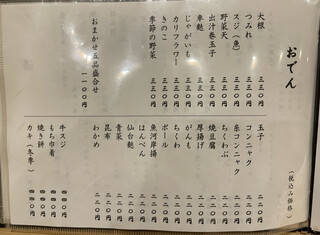 おでん
(税込み価格)
大根 三三〇円
つみれ 三三〇円
スジ(魚) 三三〇円
野菜天 三三〇円
出汁巻玉子 三三〇円
車麩 三三〇円
じゃがいも 三三〇円
カリフラワー 三三〇円
きのこ 三三〇円
季節の野菜 三三〇円
おまかせ五品盛合せ 一一〇〇円
玉子 二二〇円
コンニャク 二二〇円
糸コンニャク 二二〇円
ちくわぶ 二二〇円
焼豆腐 二二〇円
厚揚げ 二二〇円
がんも 二二〇円
ちくわ 二二〇円
ボール 二二〇円
魚河岸揚 二二〇円
はんぺん 二二〇円
仙台麩 二二〇円
青菜 二二〇円
昆布 二二〇円
わかめ 二二〇円
牛スジ 四四〇円
もち巾着 四四〇円
焼き餅 四四〇円
カキ(冬季) 四四〇円